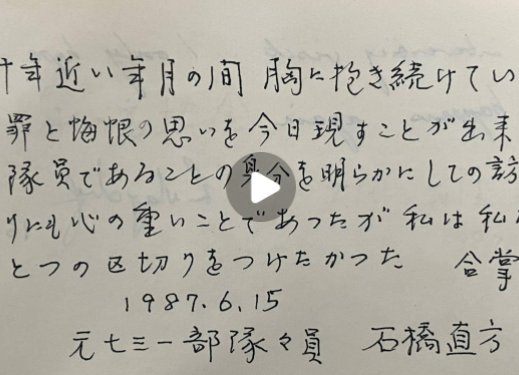 十年近い年月の間 胸に抱き続けてい
罪と悔恨の思いを今日現すことが出来
隊員であることの身分を明らかにしての訪
りにも心の重いことであったが 私は 私
とつの区切りをつけたかった 合掌
1987.6.15
元七三一部隊々員 石橋直方